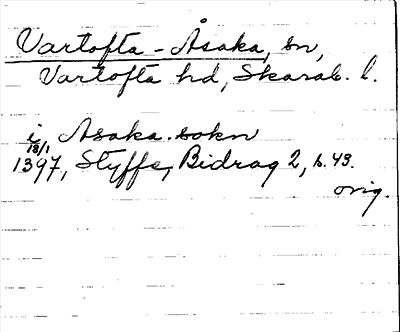 Vartofta - Åsaka, sn,
Vartofta hd, Skarab. l.
i Asaka sokn
18/1
1397, Styffe, Bidrag 2, s. 43.
orig.